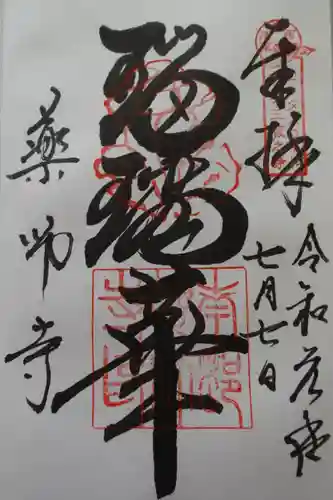 奉拝
令和元歳
七月七日
瑠璃華
薬師寺